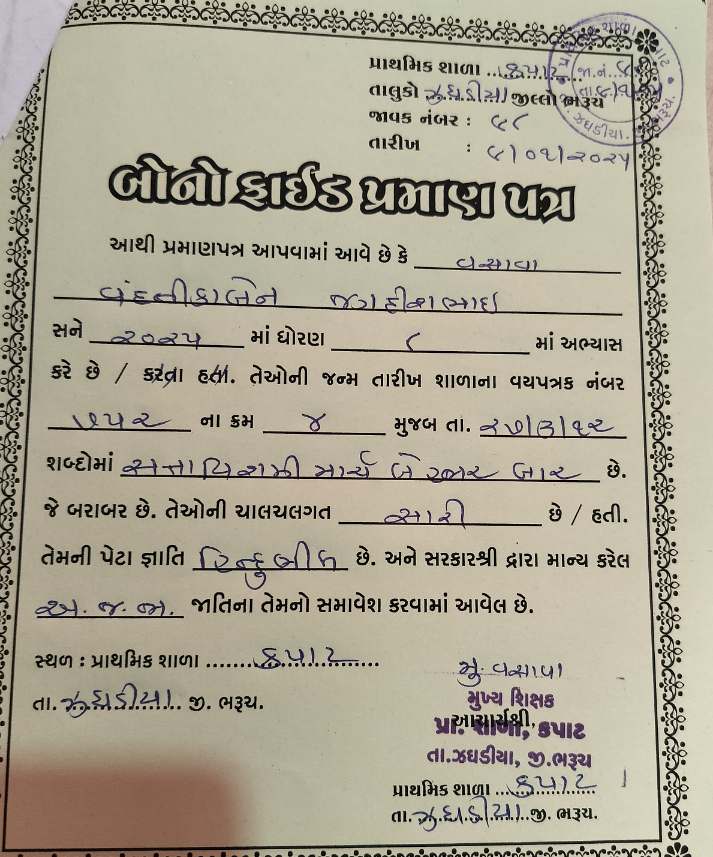 પ્રાથમિક શાળા ...કપાટ...
તાલુકો ઝઘડીયા જીલ્લો ભરૂચ
જાવક નંબર : ૯૮
તારીખ : ૯/૦૧/૨૦૨૫
બોનોફાઈડ પ્રમાણ પત્ર
આથી પ્રમાણપત્ર આપવામાં આવે છે કે વસાવા
વંદનીકાબેન જગદીશભાઇ
સને ૨૦૨૫ માં ધોરણ ૮ માં અભ્યાસ
કરે છે / કરતા હતા. તેઓની જન્મ તારીખ શાળાના વયપત્રક નંબર
૭૫૨ ના ક્રમ ૪ મુજબ તા. ૨૭/૩/૧૨
શબ્દોમાં સત્તાવિસમી માર્ચ બે હજાર બાર છે.
જે બરાબર છે. તેઓની ચાલચલગત સારી છે / હતી.
તેમની પેટા જ્ઞાતિ હિન્દુ ભીલ છે. અને સરકારશ્રી દ્વારા માન્ય કરેલ
અ.જ.જા. જાતિના તેમનો સમાવેશ કરવામાં આવેલ છે.
સ્થળ : પ્રાથમિક શાળા ........કપાટ........
તા. ઝઘડીયા.. જી. ભરૂચ.
મુ. વસાવા
મુખ્ય શિક્ષક
આચાર્યશ્રી,
પ્રા. શાળા, કપાટ
તા.ઝઘડીયા, જી.ભરૂચ
પ્રાથમિક શાળા ...કપાટ...
તા. ઝઘડીયા. જી. ભરૂચ.